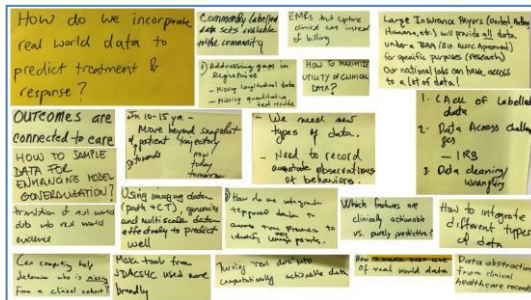 How do we incorporate
real world data to
predict treatment &
response?
Commonly labelled
data sets available
to the community
EMRs that capture
clinical care instead
of billing
Large Insurance Payors (United,
Humana, etc.) will provide all data
under a BAA (Bus. Assoc. Agreement)
for specific purposes (research)
Our national labs can have access
to a lot of data!
Addressing gaps in
- Missing longitudinal data
- Missing quantitative
test results
HOW TO MAXIMIZE
UTILITY OF CLINICAL
DATA?
OUTCOMES are
connected to care
In 10-15 yrs -
Move beyond snapshot
patient trajectory
now
today
tomorrow
- We need new
types of data.
- Need to record
observations
of behaviors.
1. Lack of Labelled
data
2. Data Access challenges
- IRB
3. Data cleaning/
wrangling
HOW TO SAMPLE
DATA FOR
ENHANCING MODEL
GENERALIZATION?
translation of real world
data into real world
evidence
Using imaging data
(path + CT), genomics
and multiscale data
effectively to predict
well
How do we integrate
data to
identify
points.
Which features are
clinically actionable
vs. purely predictive?
How to integrate
different types
of data
Can computing help
determine who is missing
from a clinical cohort?
Make tools from
JDACS4C used more
broadly
Turning "real data" into
computationally actionable data
of real world data
Data abstraction
from clinical
healthcare records